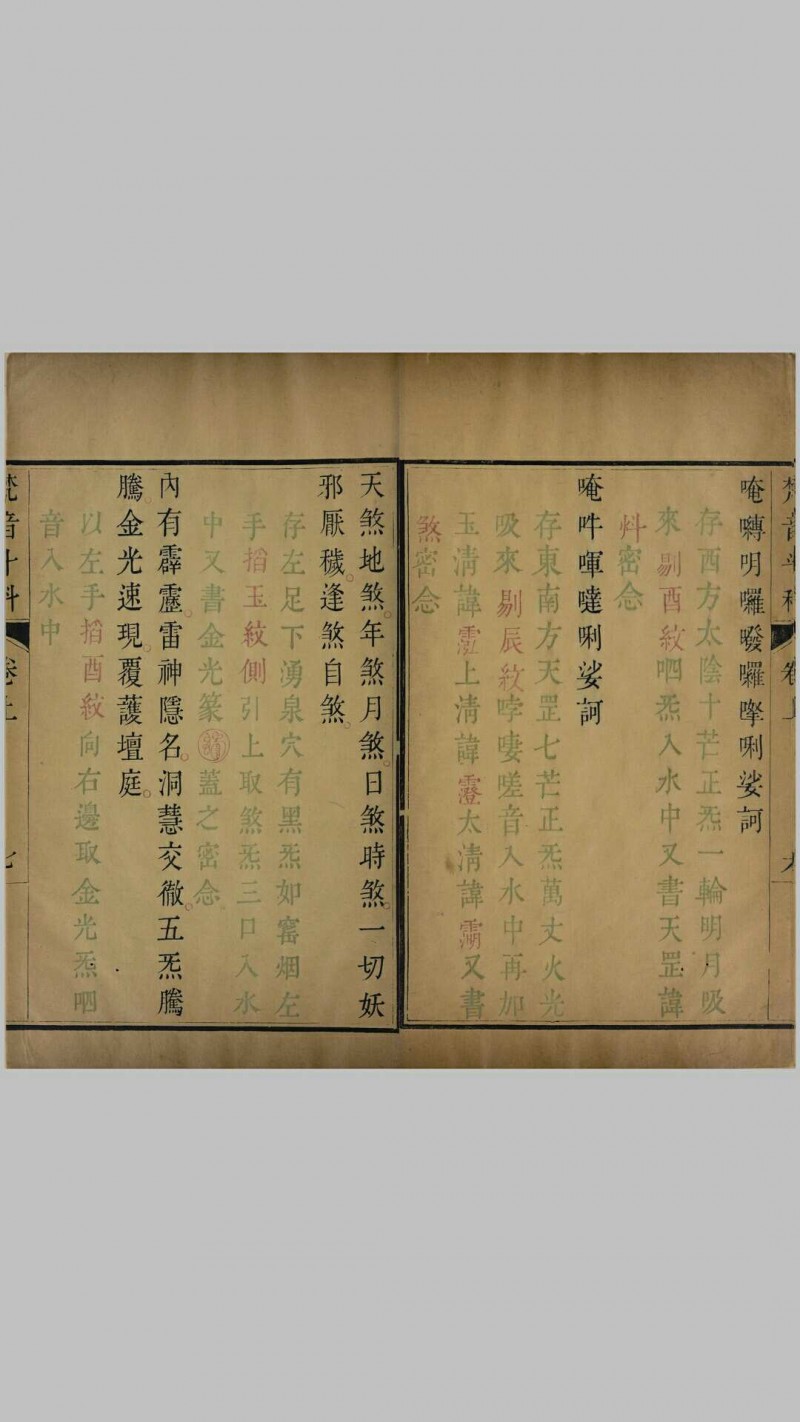 唵囀明囉㗶囉㘐唎娑訶
存西方太陰十芒正炁一輪明月吸
來剔酉紋呬炁入水中又書天罡諱
密念
唵吽㖷噠唎娑訶
存東南方天罡七芒正炁萬丈火光
吸來剔辰紋哱嘍嗟音入水中再加
玉清諱上清諱太清諱又書
煞密念
天煞地煞。年煞月煞。日煞時煞。一切妖
邪厭穢。逢煞自煞。
存左足下湧泉穴有黑炁如窰烟左
手搯玉紋側引上取煞炁三口入水
中又書金光篆蓋之密念
內有霹靂。雷神隱名。洞慧交徹。五炁騰
騰。金光速現。覆護壇庭。
以左手搯酉紋向右邊取金光炁呬
音入水中
梵音斗科 卷上 七